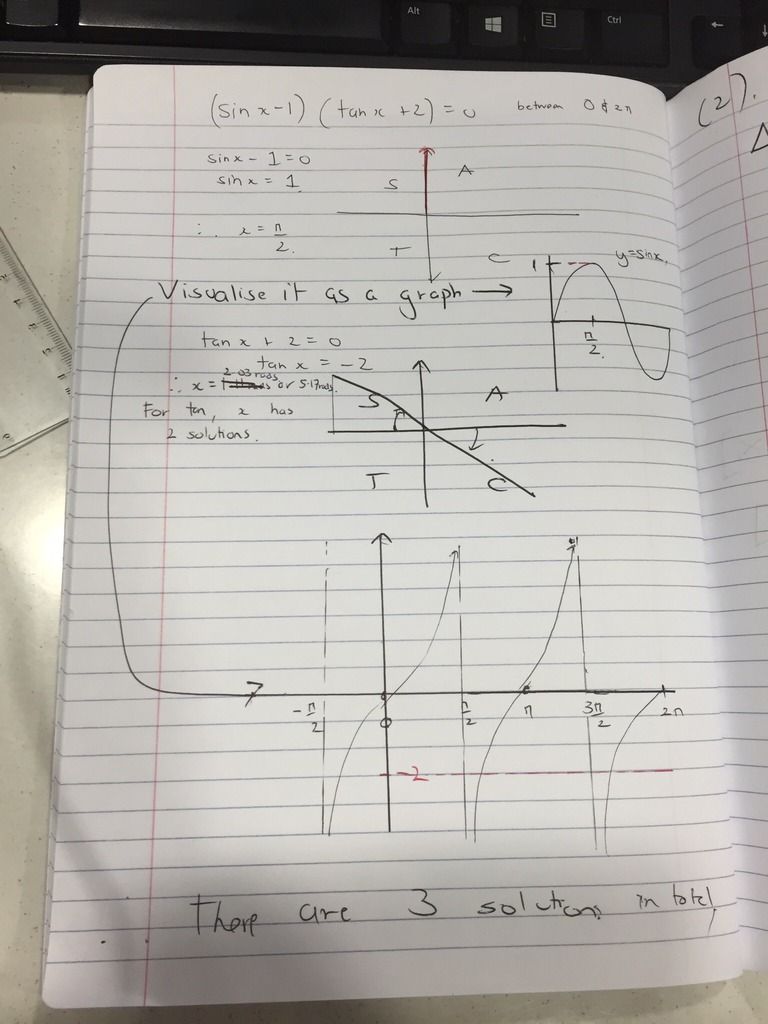 Alt
Ctrl
(sin x - 1) (tan x + 2) = 0 between 0 & 2π
(2).
sin x - 1 = 0
sin x = 1
S A
∴ x = π/2.
T C
1 y = sin x,
π/2.
Visualise it as a graph →
tan x + 2 = 0
tan x = -2
2.03 rads
∴ x = or 5.17 rads.
S A
For tan, x has
2 solutions.
T C
-π/2 0 π/2 π 3π/2 2π
-2
There are 3 solutions in total,